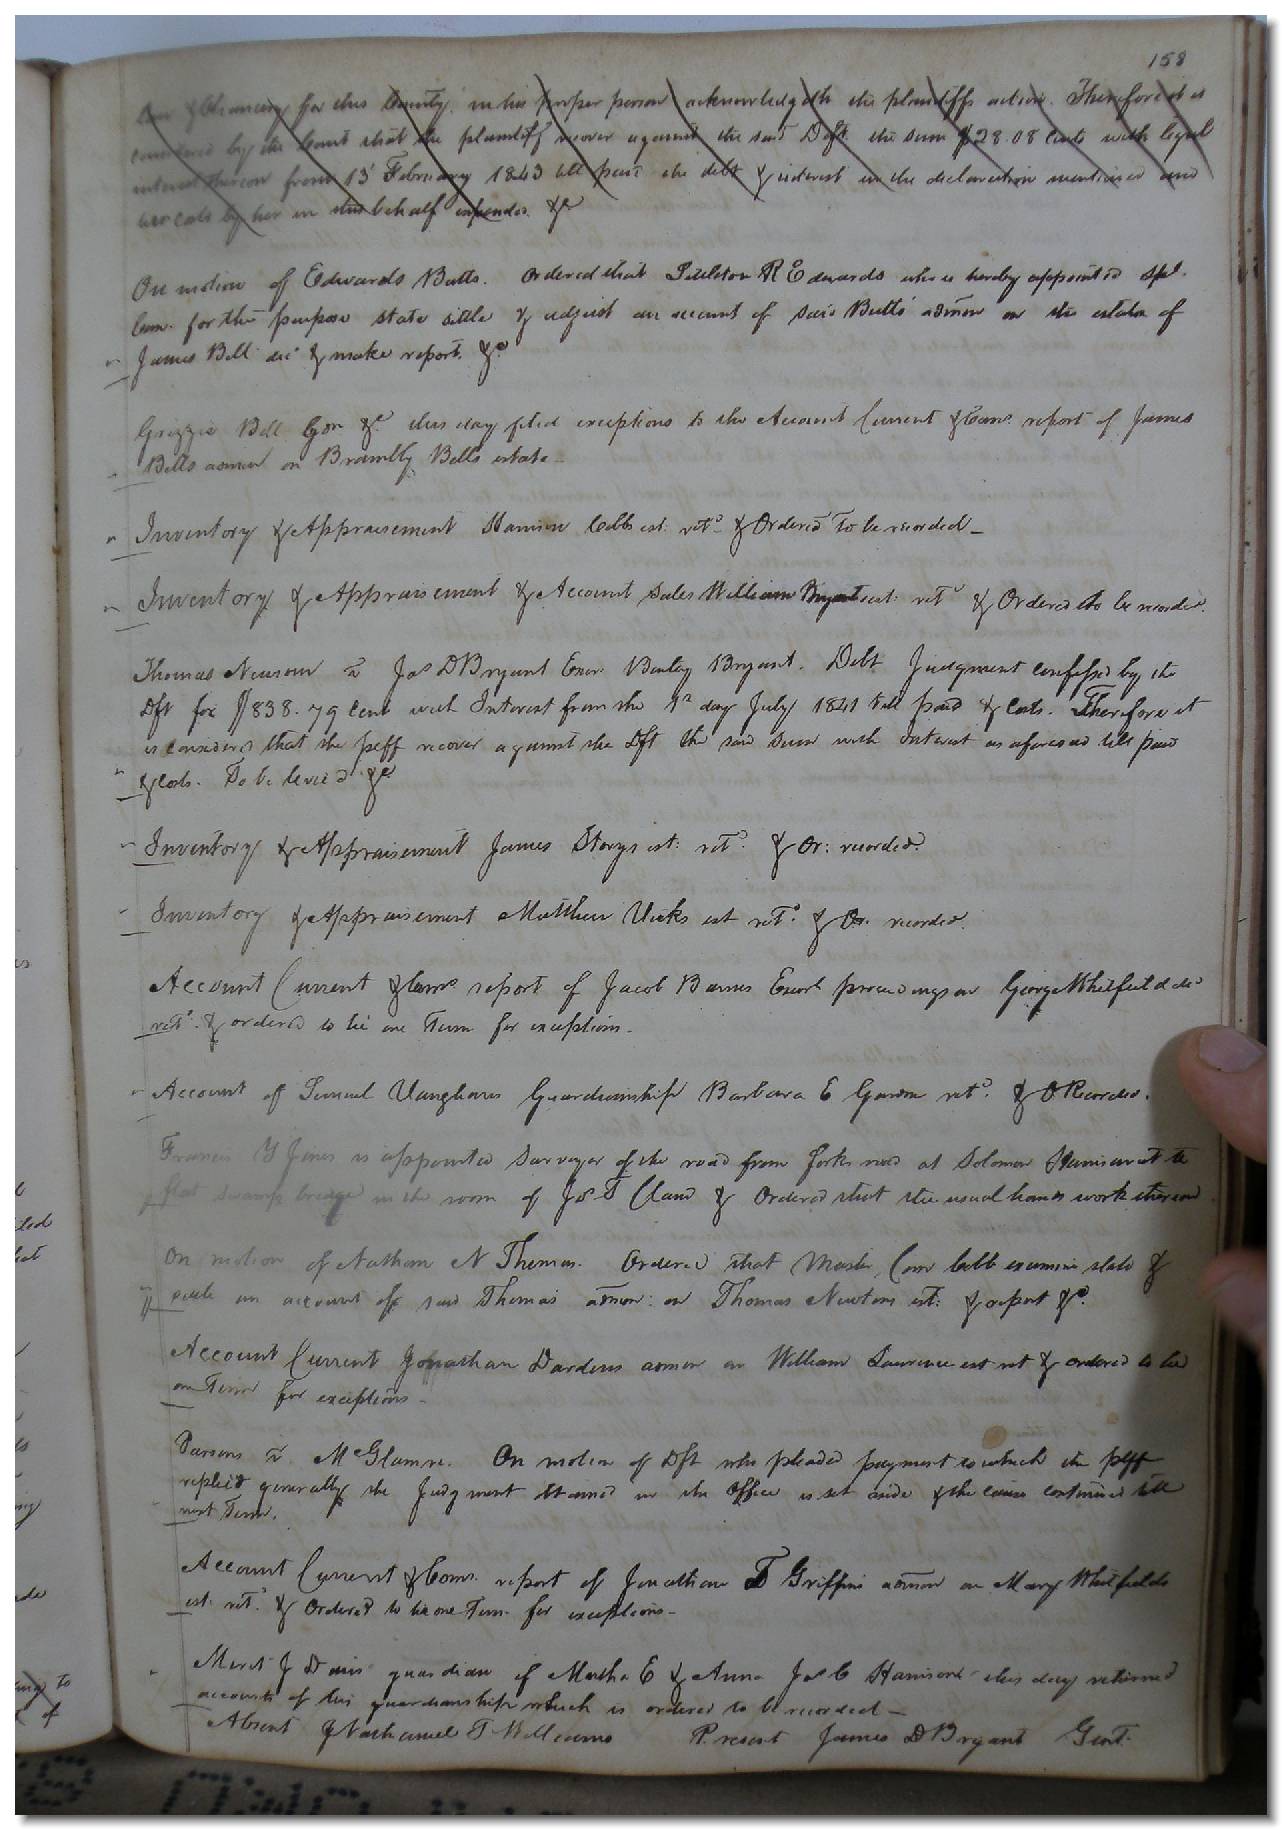 158
Law & Chancery for this County in his proper person acknowledgeth the plaintiffs action. Therefore it is
considered by the Court that the plaintiff recover against the said Deft. the sum $28.08 Cents with legal
interest thereon from 13 February 1843 till paid the debt & interest in the declaration mentioned and
her costs by her in this behalf expended &c
On motion of Edwards Butts. Ordered that Littleton R Edwards who is hereby appointed spl.
Com. for the purpose state settle & adjust an account of said Butts admon on the estate of
James Bell dec. & make report. &c
Grizzie Bell &c this day filed exceptions to the Account Current & Coms. report of James
Bells admon on Brambly Bells estate
Inventory & Appraisement Harrison Cobbs est. retd. & Ordered to be recorded
Inventory & Appraisement & Account Sales William Bryant est. retd & Ordered to be recorded.
Thomas Newsom vs Jas D Bryant Exor. Bailey Bryant. Debt Judgment confessed by the
Dft for $838.79 Cent with Interest from the 1st day July 1841 till paid & Costs. Therefore it
is considered that the plff recover against the Dft the said sum with Interest as aforesaid till paid
& Costs. To be levied &c
Inventory & Appraisement James Storys est: retd. & Or: recorded.
Inventory & Appraisement Matthew Vicks est retd. & Or. recorded.
Account Current & Coms report of Jacob Barnes Exors proceedings on George Whitfield dec
retd. & ordered to lie one Term for exceptions
Account of Lemuel Vaughans Guardianship Barbara E retd. & O Recorded.
Francis Y Jones is appointed Surveyor of the road from forks road at Solomon Harrison to the
flat swamp bridge in the room of Jas T Cland & Ordered that the usual hands work thereon
On motion of Nathan N Thomas. Ordered that Master Com Cobb examine state &
settle an account of said Thomas admon: on Thomas Newtons est: & report &c.
Account Current Jonathan Dardens admon on William Lawrence est ret & ordered to lie
one Term for exceptions
Parsons vs. McGlamre. On motion of Dft who pleaded payment to which the plff
replied generally the Judgment obtained in the Office is set aside & the cause continued till
next Term.
Account Current & Coms. report of Jonathan T Griffin admon on Mary Whitfields
est. retd. & Ordered to lie one Term for exceptions
J Davis guardian of Martha E & Anna Jas C Harrison this day returned
accounts of his guardianship which is ordered to be recorded
Absent Nathaniel T Williams Present James D Bryant Gent.